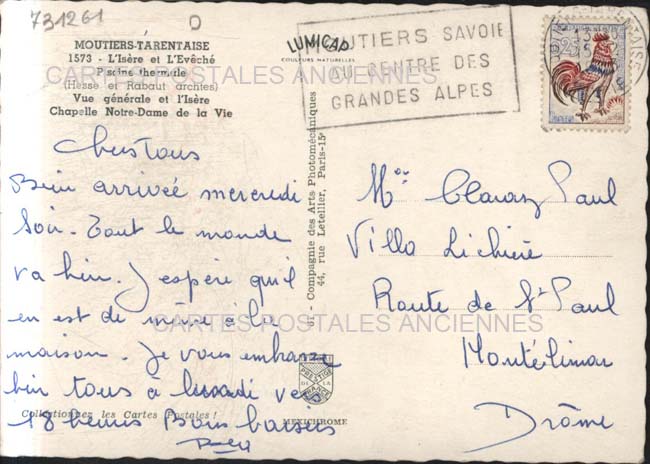 731261
MOUTIERS-TARENTAISE
1573 - L'Isère et L'Evêché
Piscine thermale
(Hesse et Rabaut archtes)
Vue générale et l'Isère
Chapelle Notre-Dame de la Vie
LUMICAP
COULEURS NATURELLES
MOUTIERS SAVOIE
AU CENTRE DES
GRANDES ALPES
CARTES POSTALES ANCIENNES
Chers tous
Bien arrivée mercredi
soir. Tout le monde
va bien. J'espère qu'il
en est de même à la
maison. Je vous embrasse
bien tous à
18 heures Bons baisers
Collectionnez les Cartes Postales !
61 - Compagnie des Arts Photomécaniques
44, rue Letellier, Paris-15e
CARTES POSTALES ANCIENNES
PRESTIGE
DE LA
FRANCE
MEXICHROME
0,25
Paul
Villa
Route de St Paul
Montélimar
Drôme